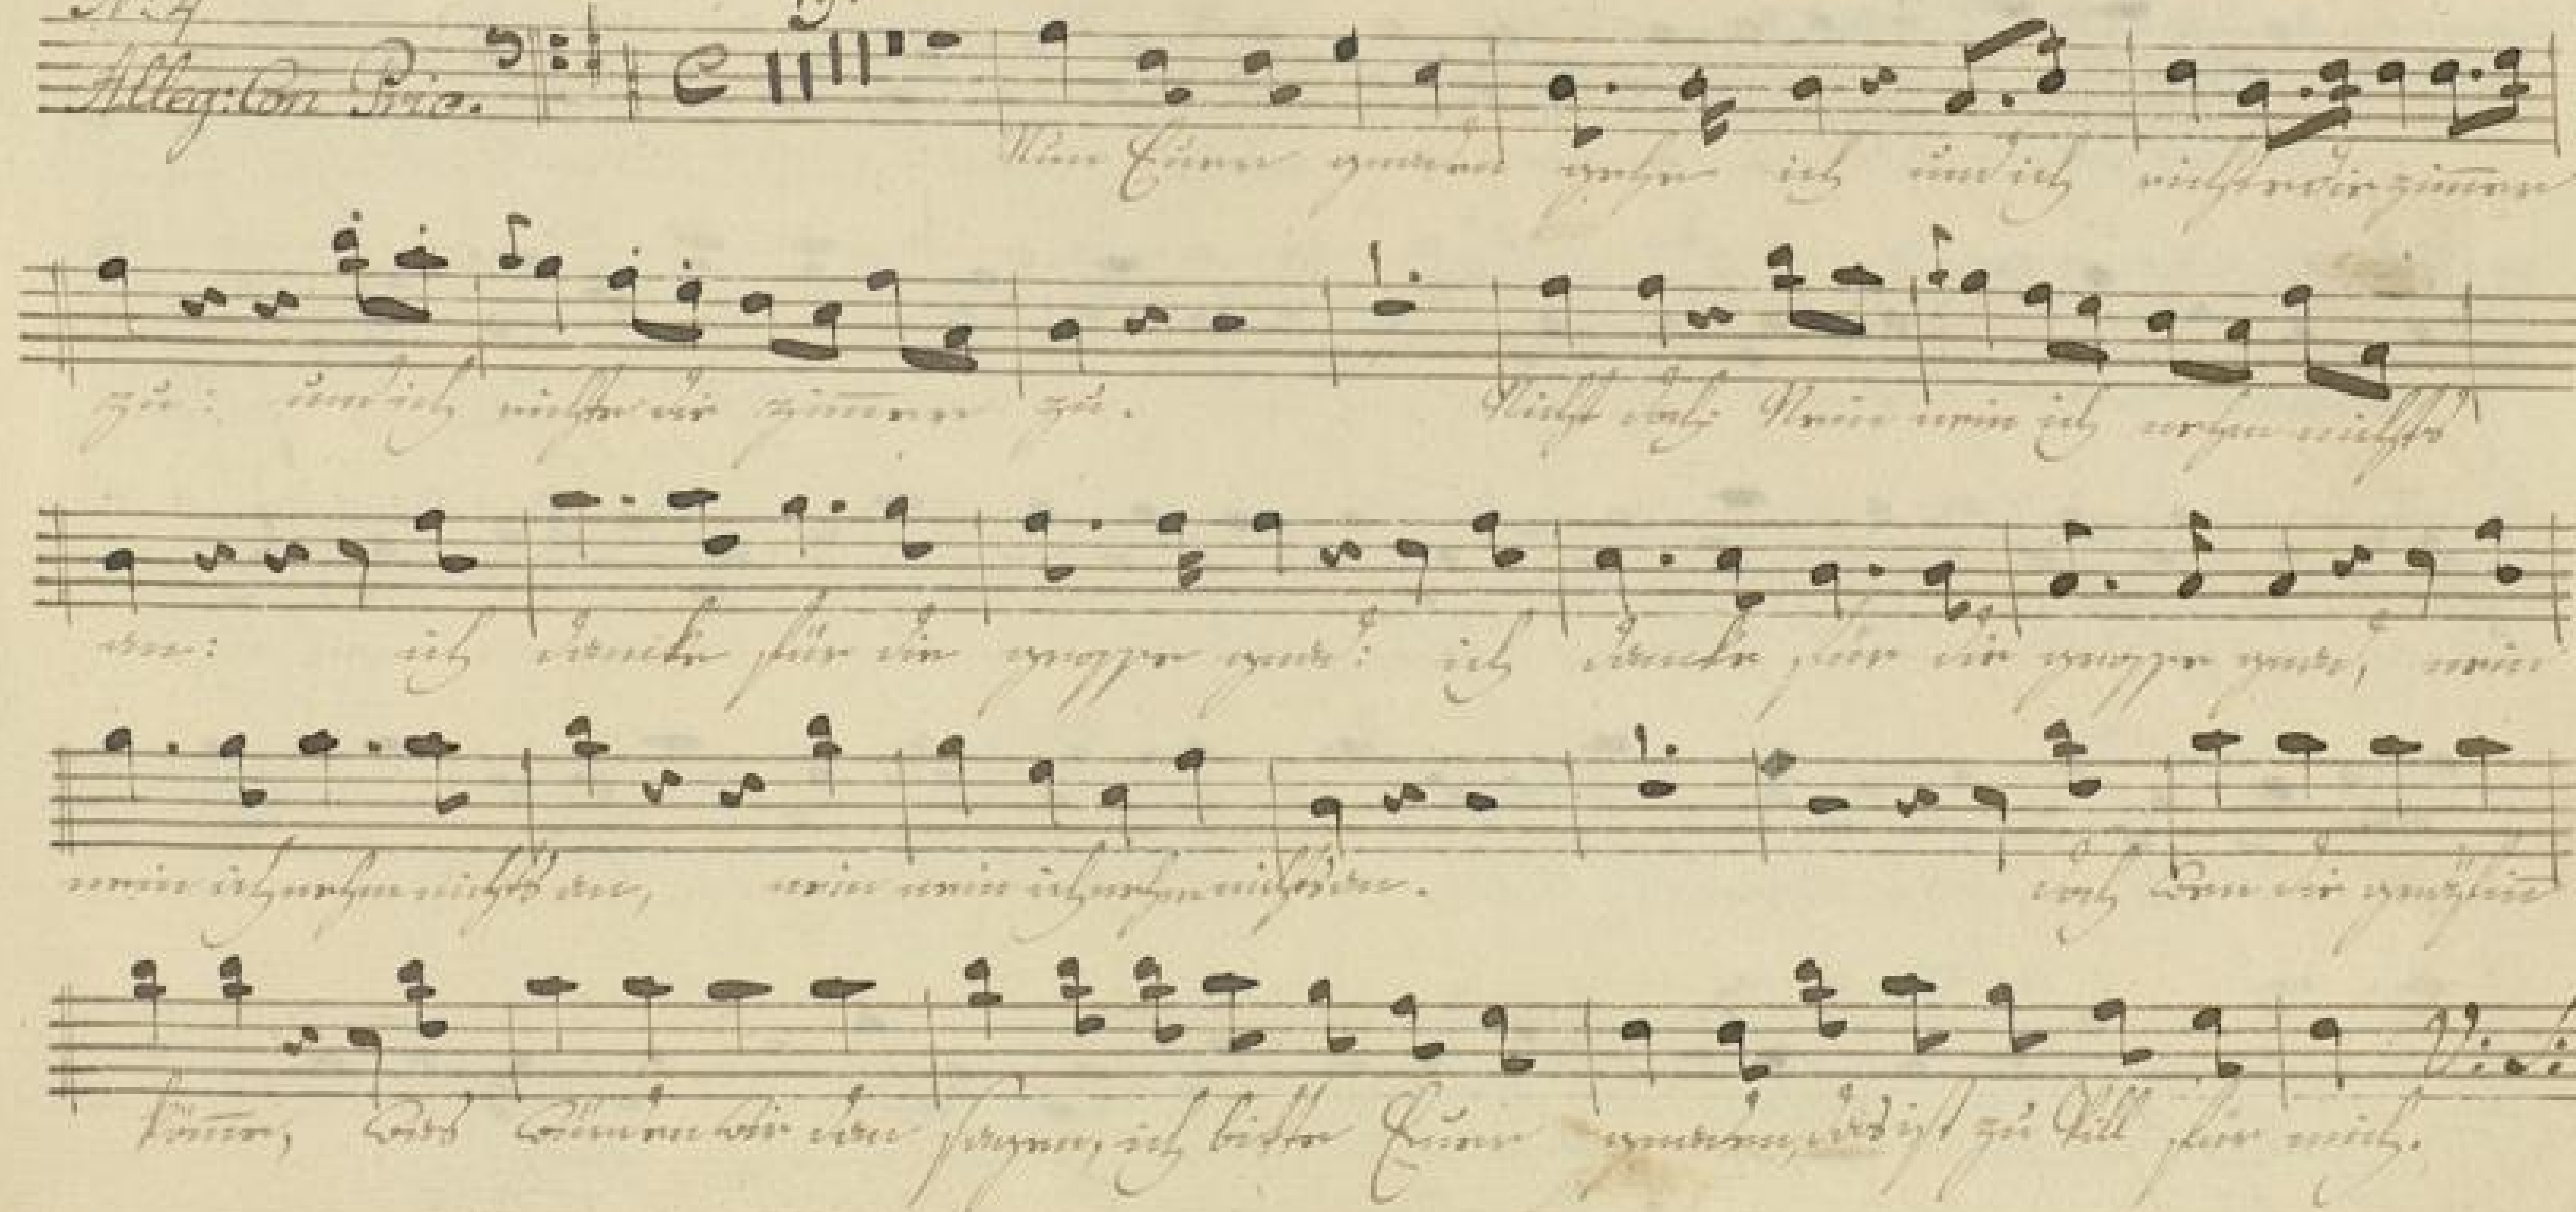 No: 4
19.
Alleg: Con Brio. C
Nun Euer gnaden gehe ich und ich richte die zim̅er
zu: und ich richte die zim̅er zu. Nicht doch Nein nein ich nehm nichts
an: ich dancke für die grosse gnad: ich dancke für die grosse gnad, nein
nein ich nehm nichts an, nein nein ich nehm nichts an. doch wen die gräfin̅
kom̅e, was würden wir dan sagen, ich bitte Euer gnaden, das ist zu Vill für mich.
V: S: